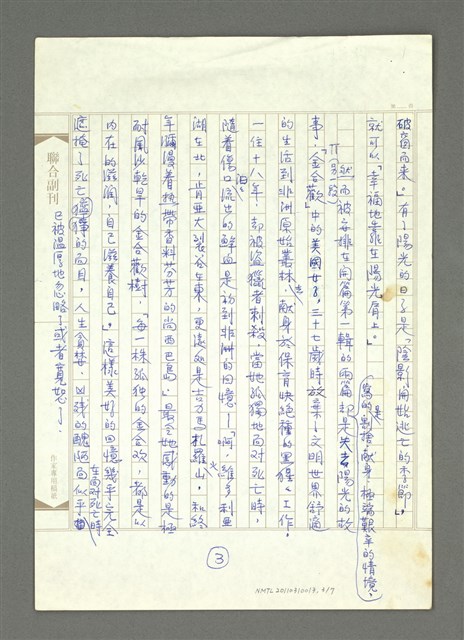 破窗而來。」有了陽光的日子是「陰影開始逃亡的季節」,
就可以「幸福地靠在陽光肩上。」
寫的是割捨、獻身、極端艱辛的情境,
然而被安排在開篇第一輯的兩篇却是失去陽光的故
事,「金合歡」中的美國女子,三十七歲時放棄了文明世界舒適
另段
的生活到非洲原始叢林去,献身於保育快絕種的黑猩猩工作,
一住十八年,却被盜獵者刺殺,當她孤獨地面对死亡時,
隨着傷口汨汨流出的鮮血是她对非洲的回憶—「啊,維多利亞
湖在北,肯亞大裂谷在東,更遠処是吉力馬札羅火山,和終
年瀰漫着挾帶香料芬芳的尚西巴島」最令她感動的是極
耐風沙乾旱的金合歡樹,「每一株孤独的金合欢,都是以
內在的滋潤,自己滋養自己。」這樣美好的回憶幾乎完全
遮掩了死亡猙獰的面目,人生貪婪、凶殘的醜陋面似乎
在面对死亡時
已被溫厚地忽略了或者寬恕了。
聯合副刊
作家專用稿紙
③
NMTL20110310013, 3/7